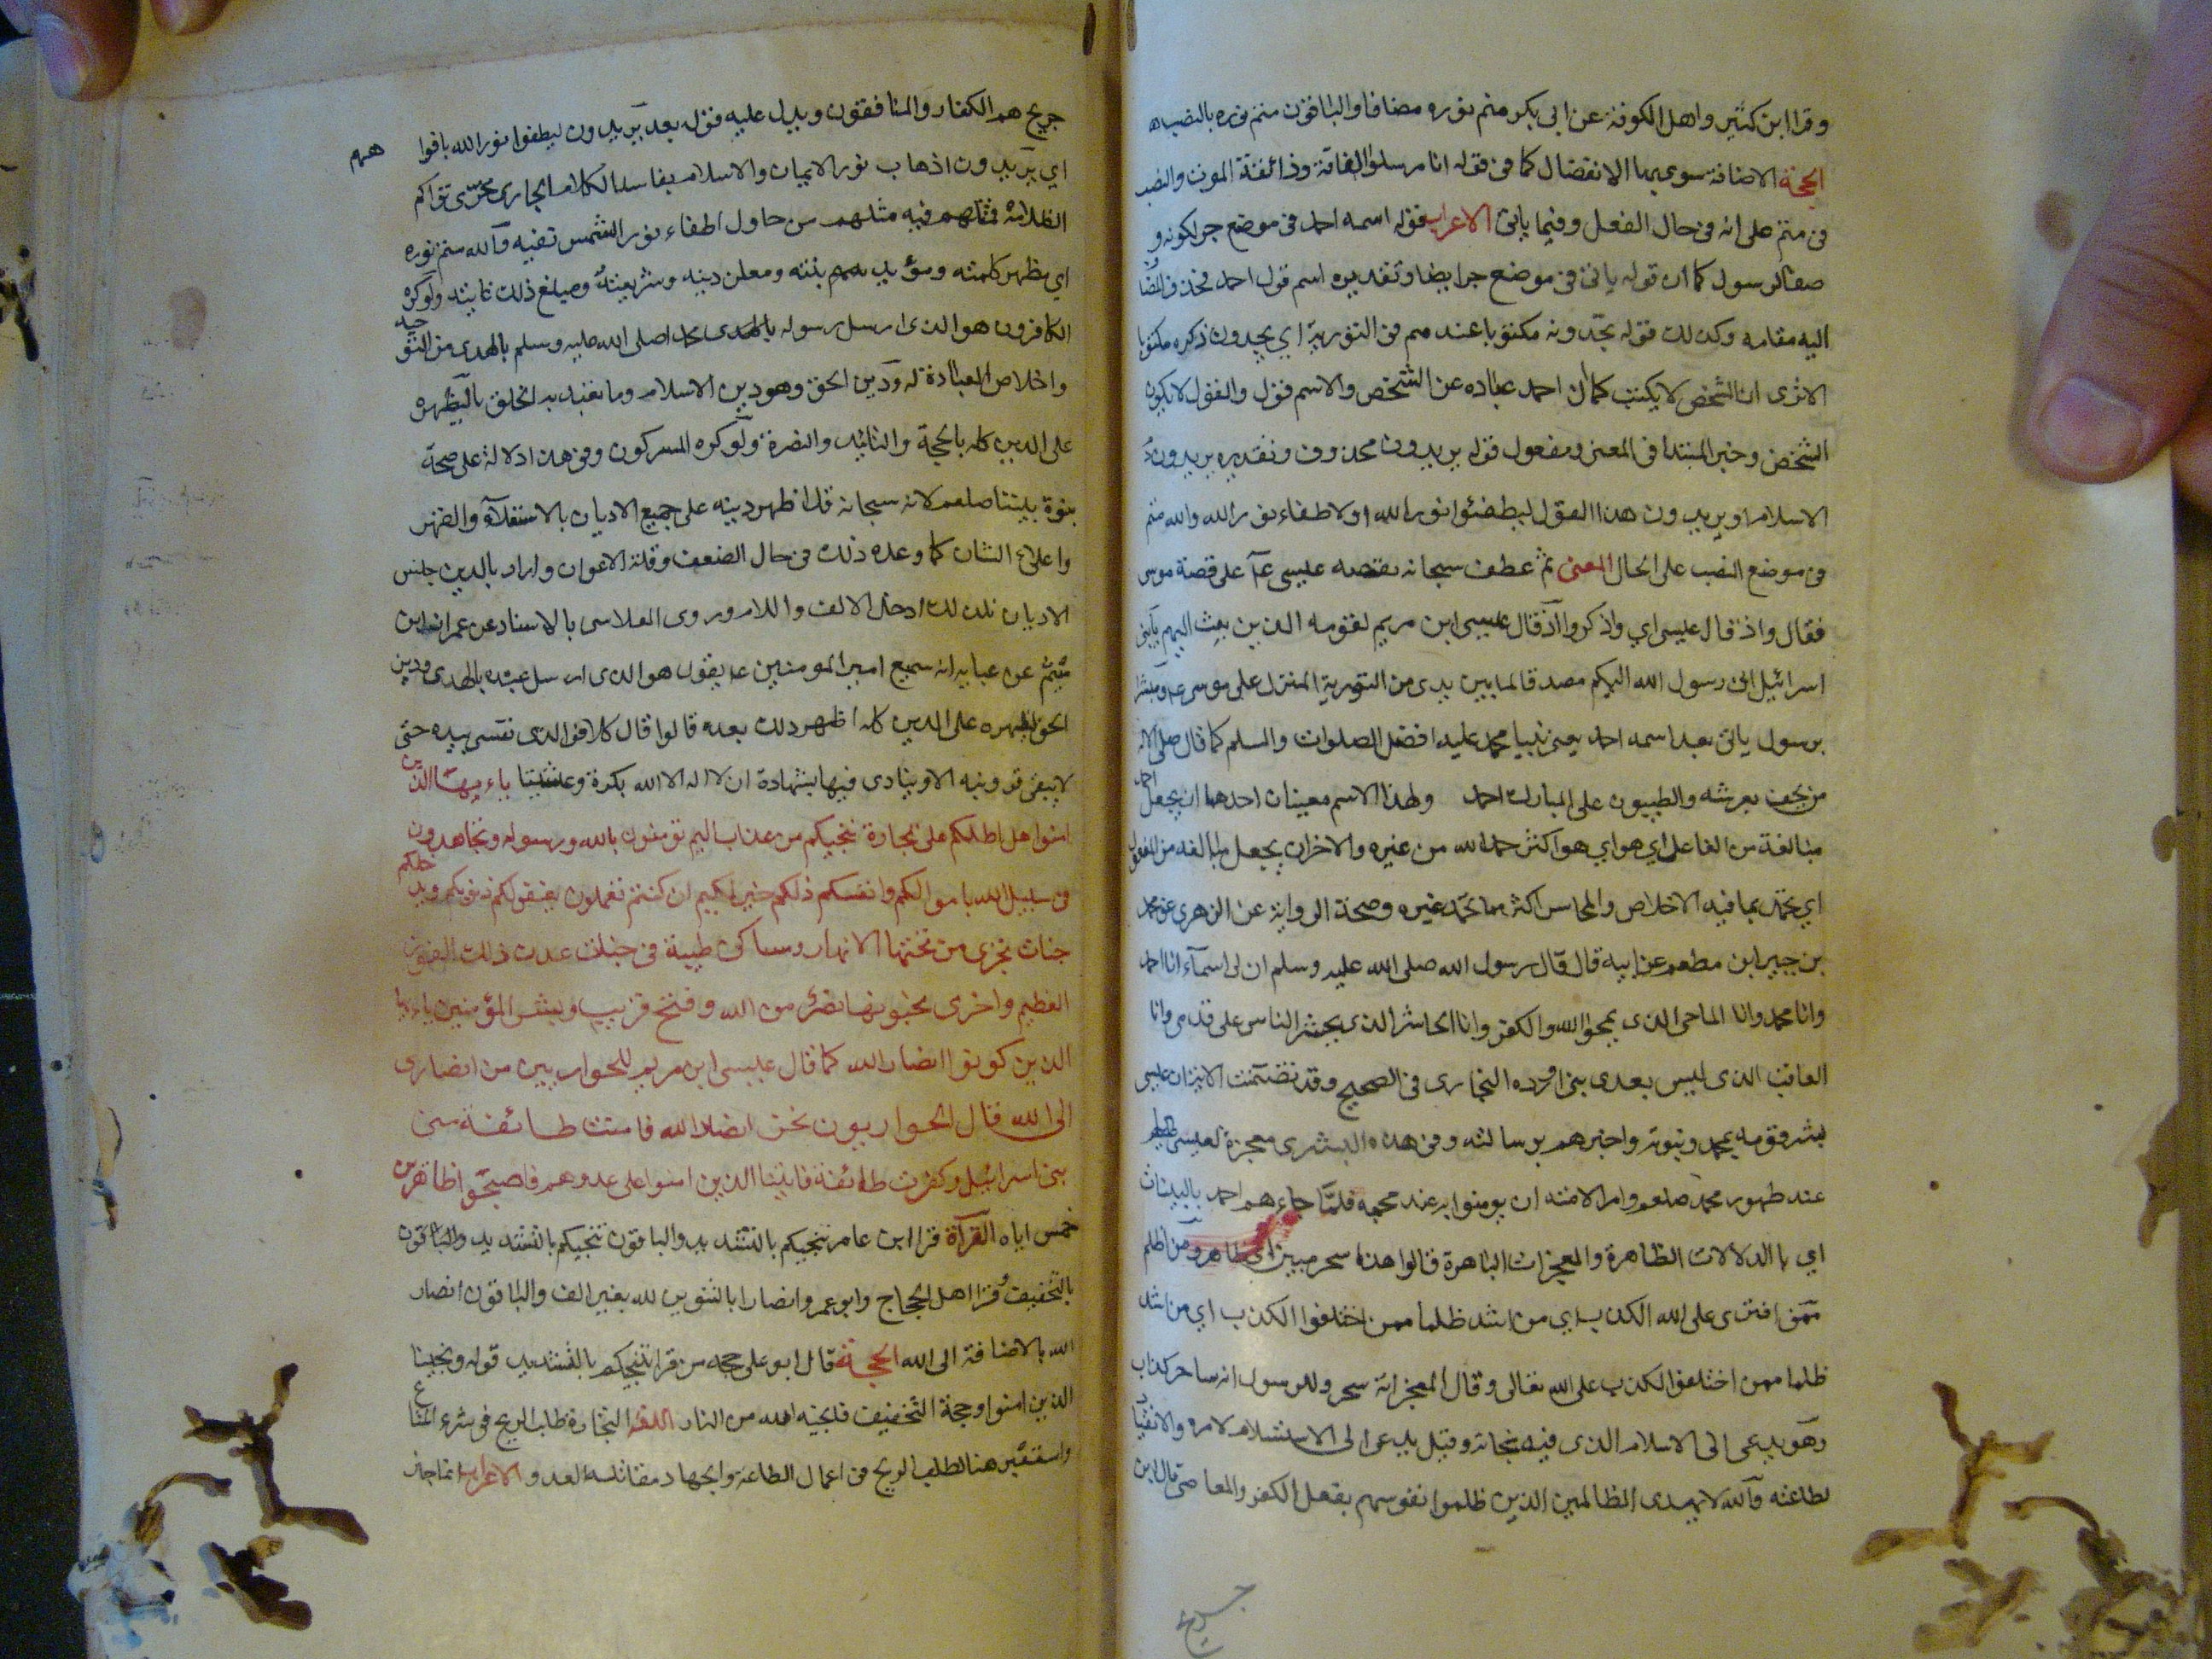 وقرا ابن كثير واهل الكوفة عن ابى بكر متم نوره مضافا والباقون متم نوره بالنصب
الحجة الاضافة سوى بها الانفصال كما فى قوله انا مرسلوا الناقة وذائقة الموت والنصب
فى متم على انه فى حال الفعل وفيما ياتى الاعراب قوله اسمه احمد فى موضع جر لكونه و
صفا لرسول كما ان قوله ياتى فى موضع جر ايضا وتقديره اسم قول احمد فحذف المضا
اليه مقامه وكذلك قوله يجدونه مكتوبا عندهم فى التورية اي يجدون ذكره مكتوبا
الا ترى ان الشخص لا يكتب كما ان احمد عباده عن الشخص والاسم قول والقول لا يكون
الشخص وخبر المبتدا فى المعنى ومفعول قوله يريدون محذوف وتقديره يريدون ذ
الاسلام او يريدون هذا القول ليطفئوا نور الله او لاطفاء نور الله والله متم
فى موضع النصب على الحال المعنى ثم عطف سبحانه بقصه عيسى عم على قصة موسى
فقال واذ قال عيسى اي واذكروا اذ قال عيسى ابن مريم لقومه الذين بعث اليهم يا بنى
اسرائيل انى رسول الله اليكم مصدقا لما بين يدى من التورية المنزل على موسى عم ومبشرا
برسول ياتى بعد اسمه احمد يعنى نبينا محمد عليه افضل الصلوات والسلم كما قال صلى الاله
من يحف بعرشه والطيبون على المبارك احمد ولهذا الاسم معينان احدهما ان يجعل احمد
مبالغة من الفاعل اي هو اي هو اكثر حمد الله من غيره والاخران يجعل مبالغه من المفعول
اي يحمد بما فيه الاخلاص والمحاسن اكثر مما يحمد غيره وصحة الرواية عن الزهرى عن محمد
بن جبير ابن مطعم عن ابيه قال قال رسول الله صلى الله عليه وسلم ان لى اسمآء انا احمد
وانا محمد وانا الماحى الذى يمحوا الله والكفر وانا الحاشر الذى يحشر الناس على قدمى وانا
العاقب الذى ليس بعدى بنى اورده البخارى فى الصحيح وقد تضمنت الاية ان عيسى
بشر قومه بمحمد وبنوته واخبرهم برسالته وفى هذه البشرى معجزة لعيسى
عند ظهور محمد صلعم وامر لامته ان يومنوا به عند مجيه فلما جاءهم احمد بالبينات
اي بالدلالات الظاهرة والمعجزات الباهرة قالوا هذا سحر مبين اى ظاهر ومن اظلم
ممن افترى على الله الكذب اي من اشد ظلما ممن اختلقوا الكذب اي من اشد
ظلما ممن اختلق الكذب على الله تعالى وقال المعجزاته سحر وللرسول انه ساحر كذاب
وهو يدعى الى الاسلام الذى فيه نجاته وقيل يدعى الى الاستسلام لامره والانقيا
لطاعته والله لا يهدى الظالمين الذين ظلموا نفوسهم بفعل الكفر والمعاصى قال ابن
جريج
جريج هم الكفار والمنافقون ويدل عليه قوله بعد يريدون ليطفوا نور الله بافوا ههم
اي يريدون اذهاب نور الايمان والاسلام بفاسد الكلام الجارى مجرى تراكم
الظلامة فمثلهم فيه مثلهم من حاول اطفاء نور الشمس تفيه والله متم نوره
اي مظهر كلمته ومؤيد بنيه ومعلن دينه وشريعته ومبلغ ذلك ولو كره
الكافرون هو الذى ارسل رسوله بالهدى محمدا صلى الله عليه وسلم بالهدى من التو حيد
واخلاص العبادة له ودين الحق وهو دين الاسلام وما تعبد به الخلق ليظهره
على الدين كله بالحجة والتائيد والنصرة ولو كره المسركون وفى هذا دلالة على صحة
بنوة نبيننا صلعم لانه سبحانه قد اظهر دينه على جميع الاديان بالاستعلاء والقهر
واعلاع الشان كما وعده ذلك فى حال الضعف وقلة الاعوان واراد بالدين جنس
الاديان فلذلك ادخل الالف واللام وروى العلاسى بالاسناد عن عمران ابن
ميثم عن عبايه انه سميع امير المومنين عم يقول هو الذى ارسل عبده بالهدى ودين
الحق ليظهره على الدين كله اظهر ذلك بعد قالوا قال كلا فو الذى نفسى بيده حتى
لا يبقى قروينه الا وينادى فيها بشهادة ان لا اله الا الله بكرة وعشيتا ياءيها الذين
امنوا هل اظلكم على تجارة تنجيكم من عذاب اليم تومنون بالله ورسوله وتجاهدون
فى سبيل الله باموالكم وانفسكم ذلكم خير لكم ان كنتم تعملون يغفر لكم ذنوبكم ويد خلكم
جنات تجرى من تحتها الانهار ومساكن طيبة فى جنات عدن ذلك الفوز
العظيم واخرى تحبونها نصر من الله وفتح قريب وبشر المؤمنين ياءيها
الذين كونوا انصار الله كما قال عيسى ابن مريم للحواريين من انصارى
الى الله قال الحواريون نحن انصار الله فامنت طائفة من
بنى اسرائيل وكفرت طائفة فايدنا الذين امنوا على عدوهم فاصبحوا ظاهرين
خمس اياه القرآة قرا ابن عامر تنجيكم بالتشديد والباقون تنجيكم بالتشديد والباقون
بالتخفيف وقرا اهل الحجاج وابو عمر وانصارا بالتنوين لله بغير الف والباقون انصار
الله بالاضافة الى الله الحجة قال ابو على حجه من قرا تنجيكم بالتشديد قوله ونجينا
الذين امنوا وحجة التخفيف فانجيه الله من النار اللغه التجارة طلب الربح فى شرء المتا ع
واستعير هنا لطلب الربح فى اعمال الطاعة والجهاد مقاتلة العدو والاعراب انما جاز